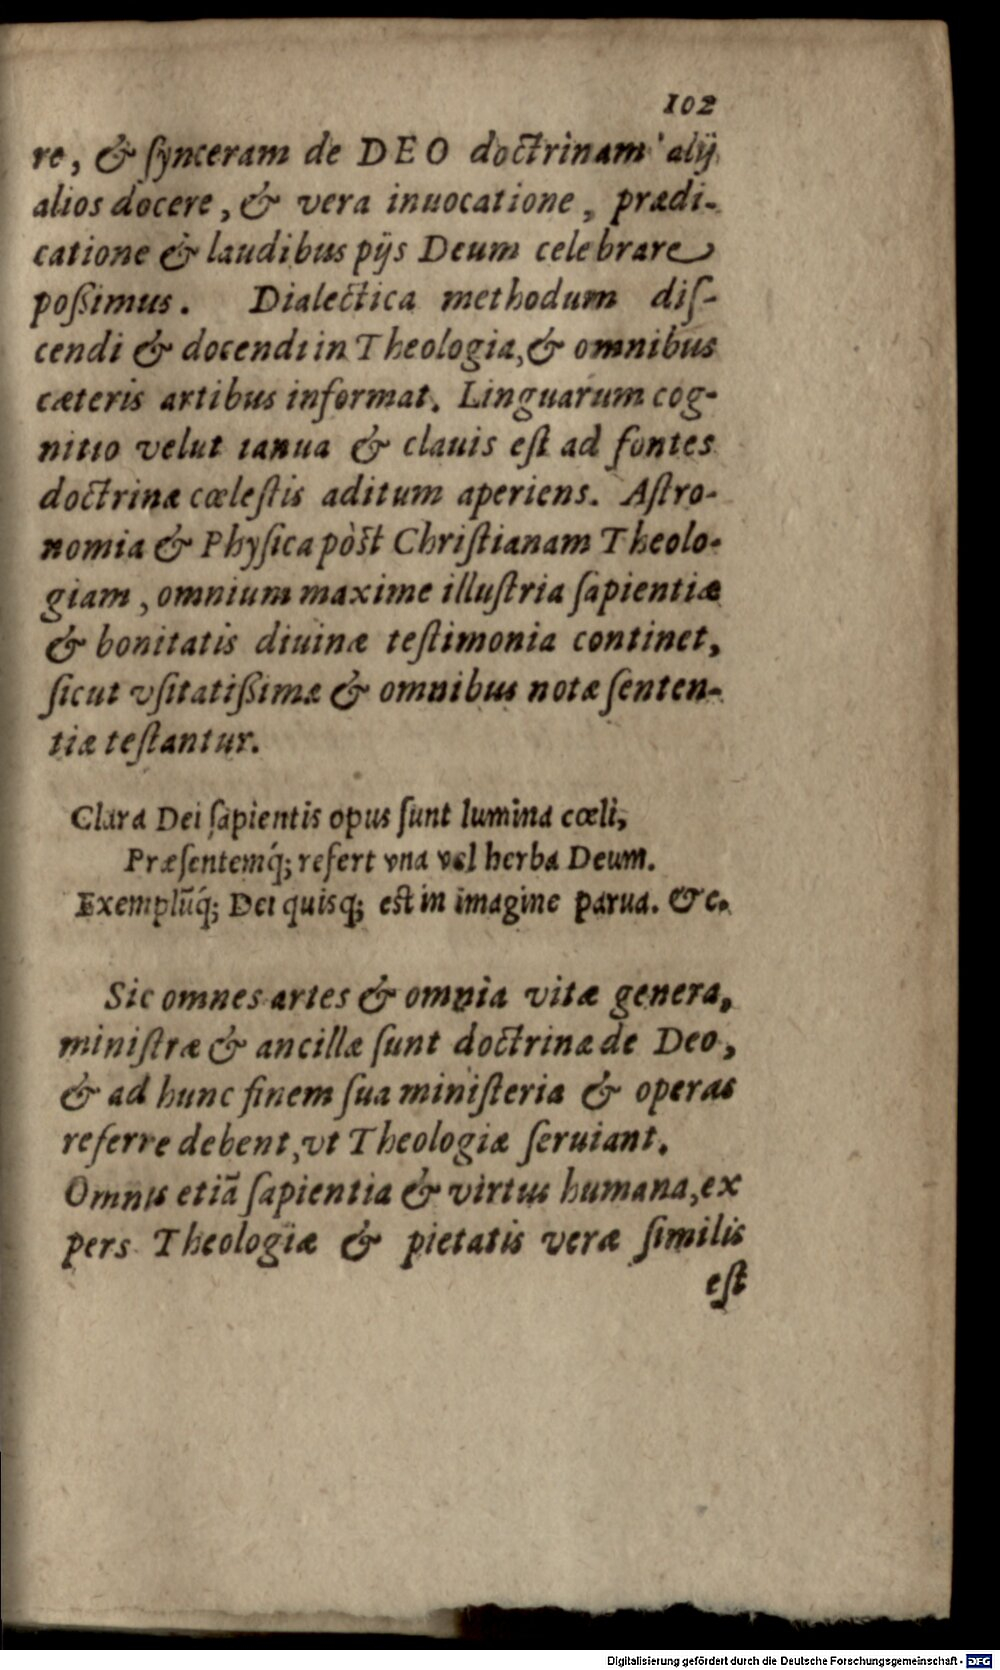 102
re, & ſynceram de DEO doctrinam alij
alios docere, & vera inuocatione, prædi-
catione & laudibus pijs Deum celebrare
poßimus. Dialectica methodum diſ-
cendi & docendi in Theologia, & omnibus
cæteris artibus informat. Linguarum cog-
nitio velut ianua & clauis eſt ad fontes
doctrinæ cœleſtis aditum aperiens. Aſtro-
nomia & Phyſica pòſt Chriſtianam Theolo-
giam, omnium maxime illuſtria ſapientiæ
& bonitatis diuinæ teſtimonia continet,
ſicut vſitatißimæ & omnibus notæ ſenten-
tiæ teſtantur.
Clara Dei ſapientis opus ſunt lumina cœli,
Præſentemq́; refert vna vel herba Deum.
Exemplũq́; Dei quisq; eſt in imagine parua. &c.
Sic omnes artes & omnia vitæ genera,
miniſtræ & ancillæ ſunt doctrinæ de Deo,
& ad hunc finem ſua miniſteria & operas
referre debent, vt Theologiæ ſeruiant.
Omnis etiã ſapientia & virtus humana, ex
pers Theologiæ & pietatis veræ ſimilis
eſt
Digitalisierung gefördert durch die Deutsche Forschungsgemeinschaft - DFG